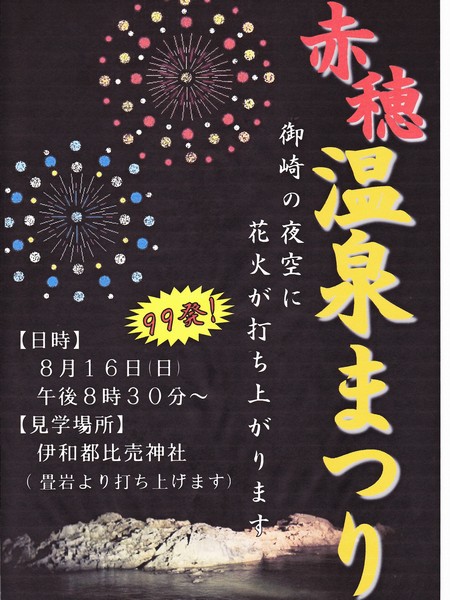 赤穂温泉まつり
御崎の夜空に
花火が打ち上がります
99発!
【日時】
8月16日(日)
午後8時30分～
【見学場所】
伊和都比売神社
(畳岩より打ち上げます)